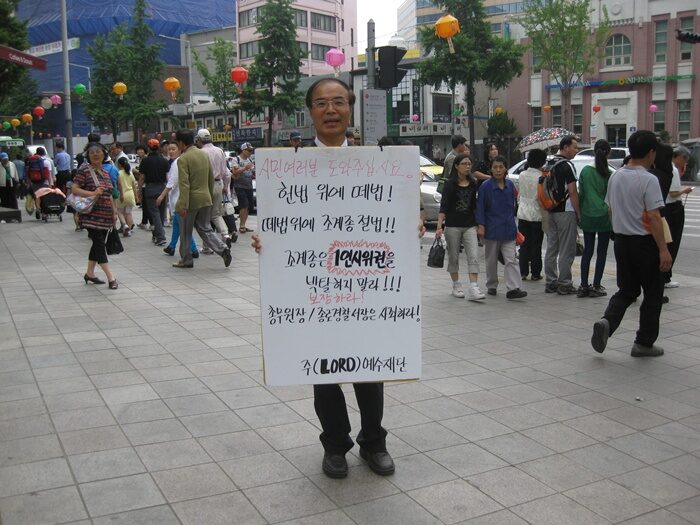 시민여러분 도와주십시요.
헌법 위에 떼법!
떼법위에 조계종 절법!!
조계종은 1인시위권을
박탈하지 말라!!!
보장하라!
총무원장/종로경찰서장은 사죄하라!
주(LORD)예수재단